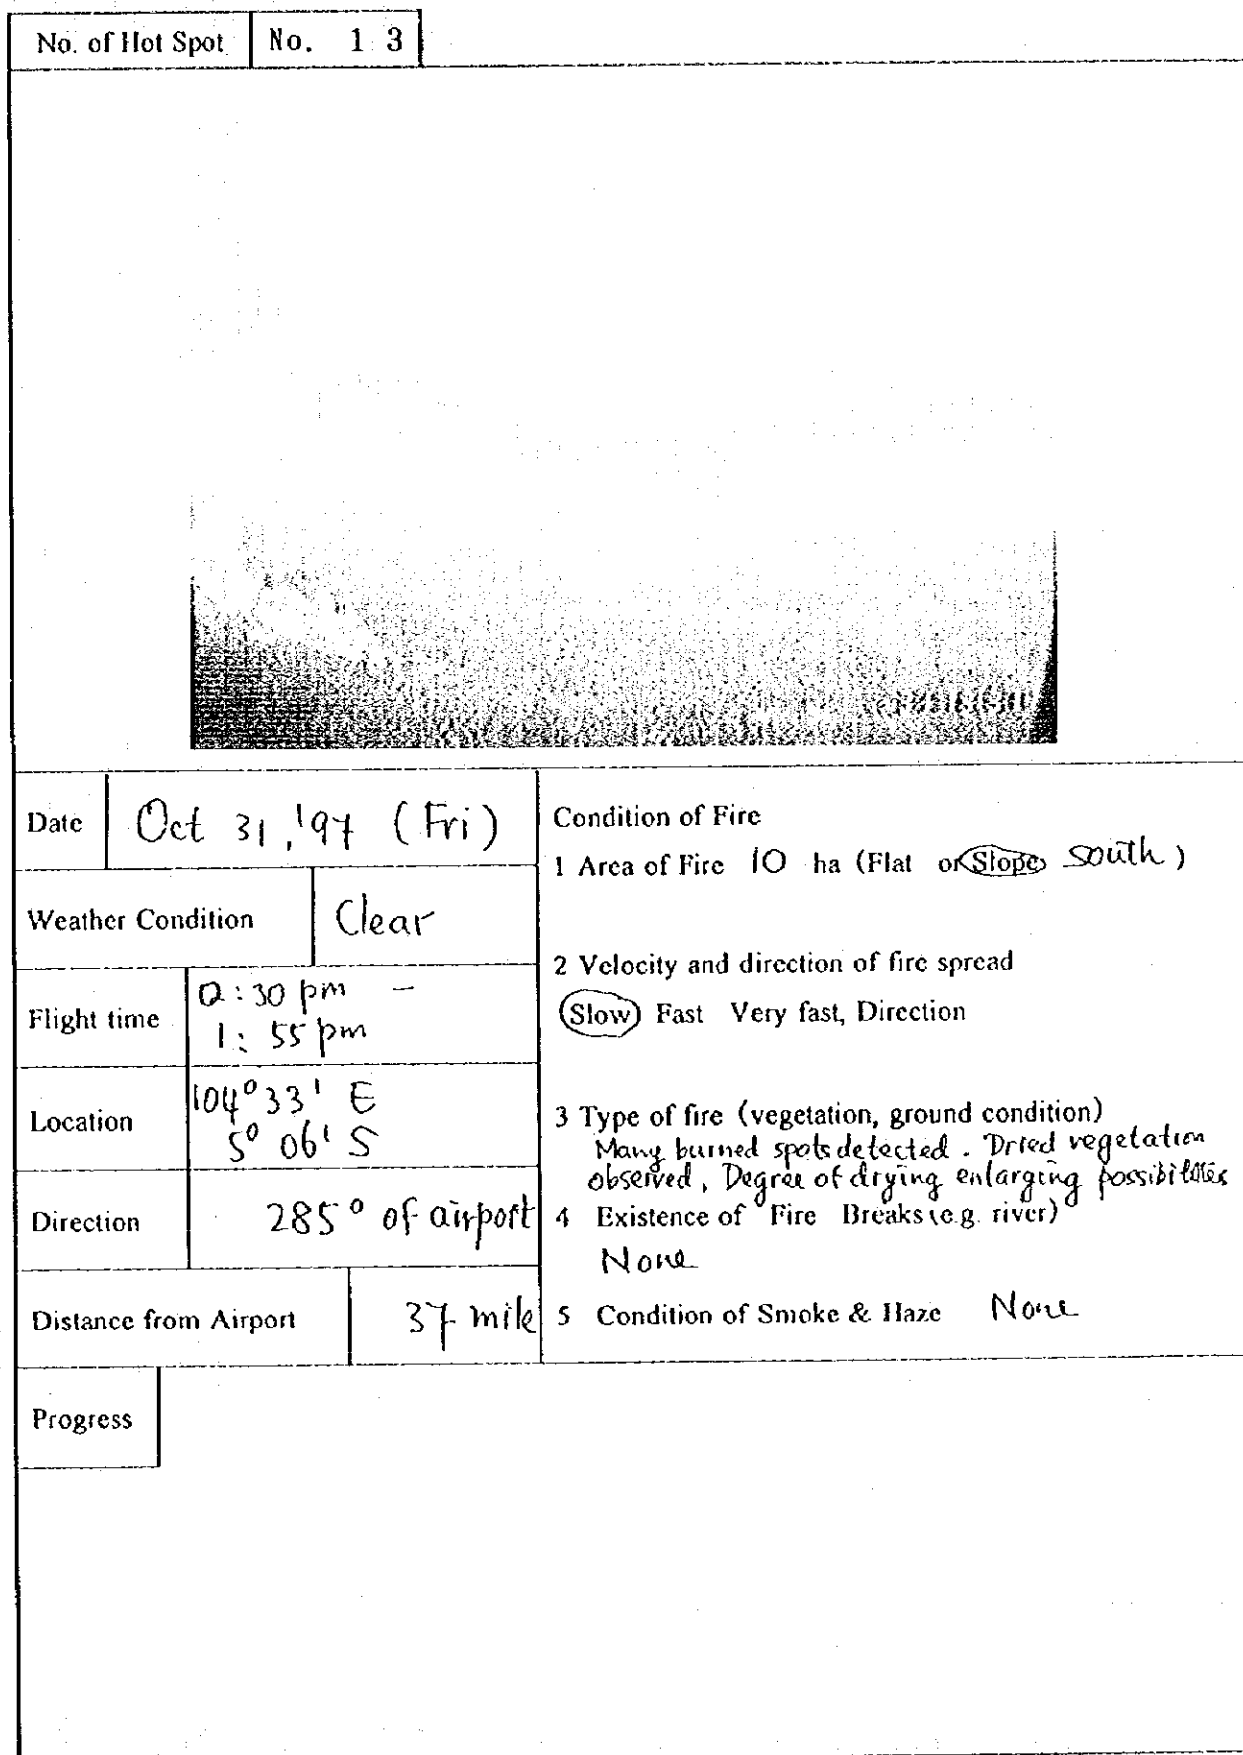 No. of Hot Spot No. 1 3
Date Oct 31, '97 (Fri)
Weather Condition Clear
Flight time 0:30 pm –
1:55 pm
Location 104° 33' E
5° 06' S
Direction 285° of airport
Distance from Airport 37 mile
Condition of Fire
1 Area of Fire 10 ha (Flat or Slope south )
2 Velocity and direction of fire spread
Slow Fast Very fast, Direction
3 Type of fire (vegetation, ground condition)
Many burned spots detected. Dried vegetation
observed, Degree of drying enlarging possibilities
4 Existence of Fire Breaks (e.g. river)
None
5 Condition of Smoke & Haze None
Progress